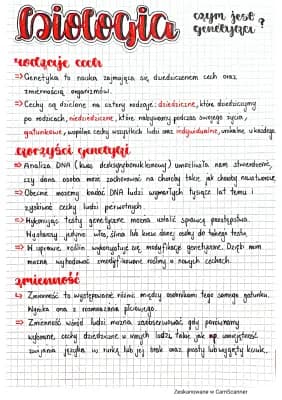 Biologia
czym jest genetyka?
rodzaje cech
⇒ Genetyka to nauka zajmująca się dziedziczeniem cech oraz
zmiennością organizmów.
⇒ Cechy są dzielone na cztery rodzaje: dziedziczne, które dziedziczymy
po rodzicach, niedziedziczne, które nabywamy podczas swojego życia,
gatunkowe, wspólne cechy wszystkich ludzi oraz indywidualne, unikalne u każdego.
korzyści genetyki
⇒ Analiza DNA (kwas deoksyrybonukleinowy) umożliwia nam stwierdzenie,
czy dana osoba może zachorować na choroby takie, jak choroby nowotworowe.
⇒ Obecnie możemy badać DNA ludzi wymarłych tysiące lat temu i
zyskiwać cechy ludzi pierwotnych.
⇒ Wykonując testy genetyczne można ustalić sprawcę przestępstwa.
Wystarczy jedynie włos, ślina lub krew danej osoby do takiego testu.
⇒ W uprawie roślin wykorzystuje się modyfikacje genetyczne. Dzięki nim
można wyhodować zmodyfikowane rośliny o nowych cechach.
zmienność
↳ Zmienność to występowanie różnic między osobnikami tego samego gatunku.
Wynika ona z rozmnażania płciowego.
⇒ Zmienność wśród ludzi można zaobserwować, gdy porównamy
wybrane, cechy dziedziczne u innych ludzi, takie jak np. umiejętność
zwijania języka w rurkę lub jej brak oraz prosty lub wygięty kciuk.
Zeskanowane w CamScanner